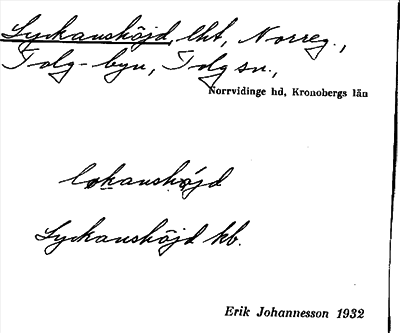 Lyckanshöjd, lht, Norreg.,
Tolg-byn, Tolg sn.,
Norrvidinge hd, Kronobergs län
lokanshöjd
Lyckanshöjd kb.
Erik Johannesson 1932